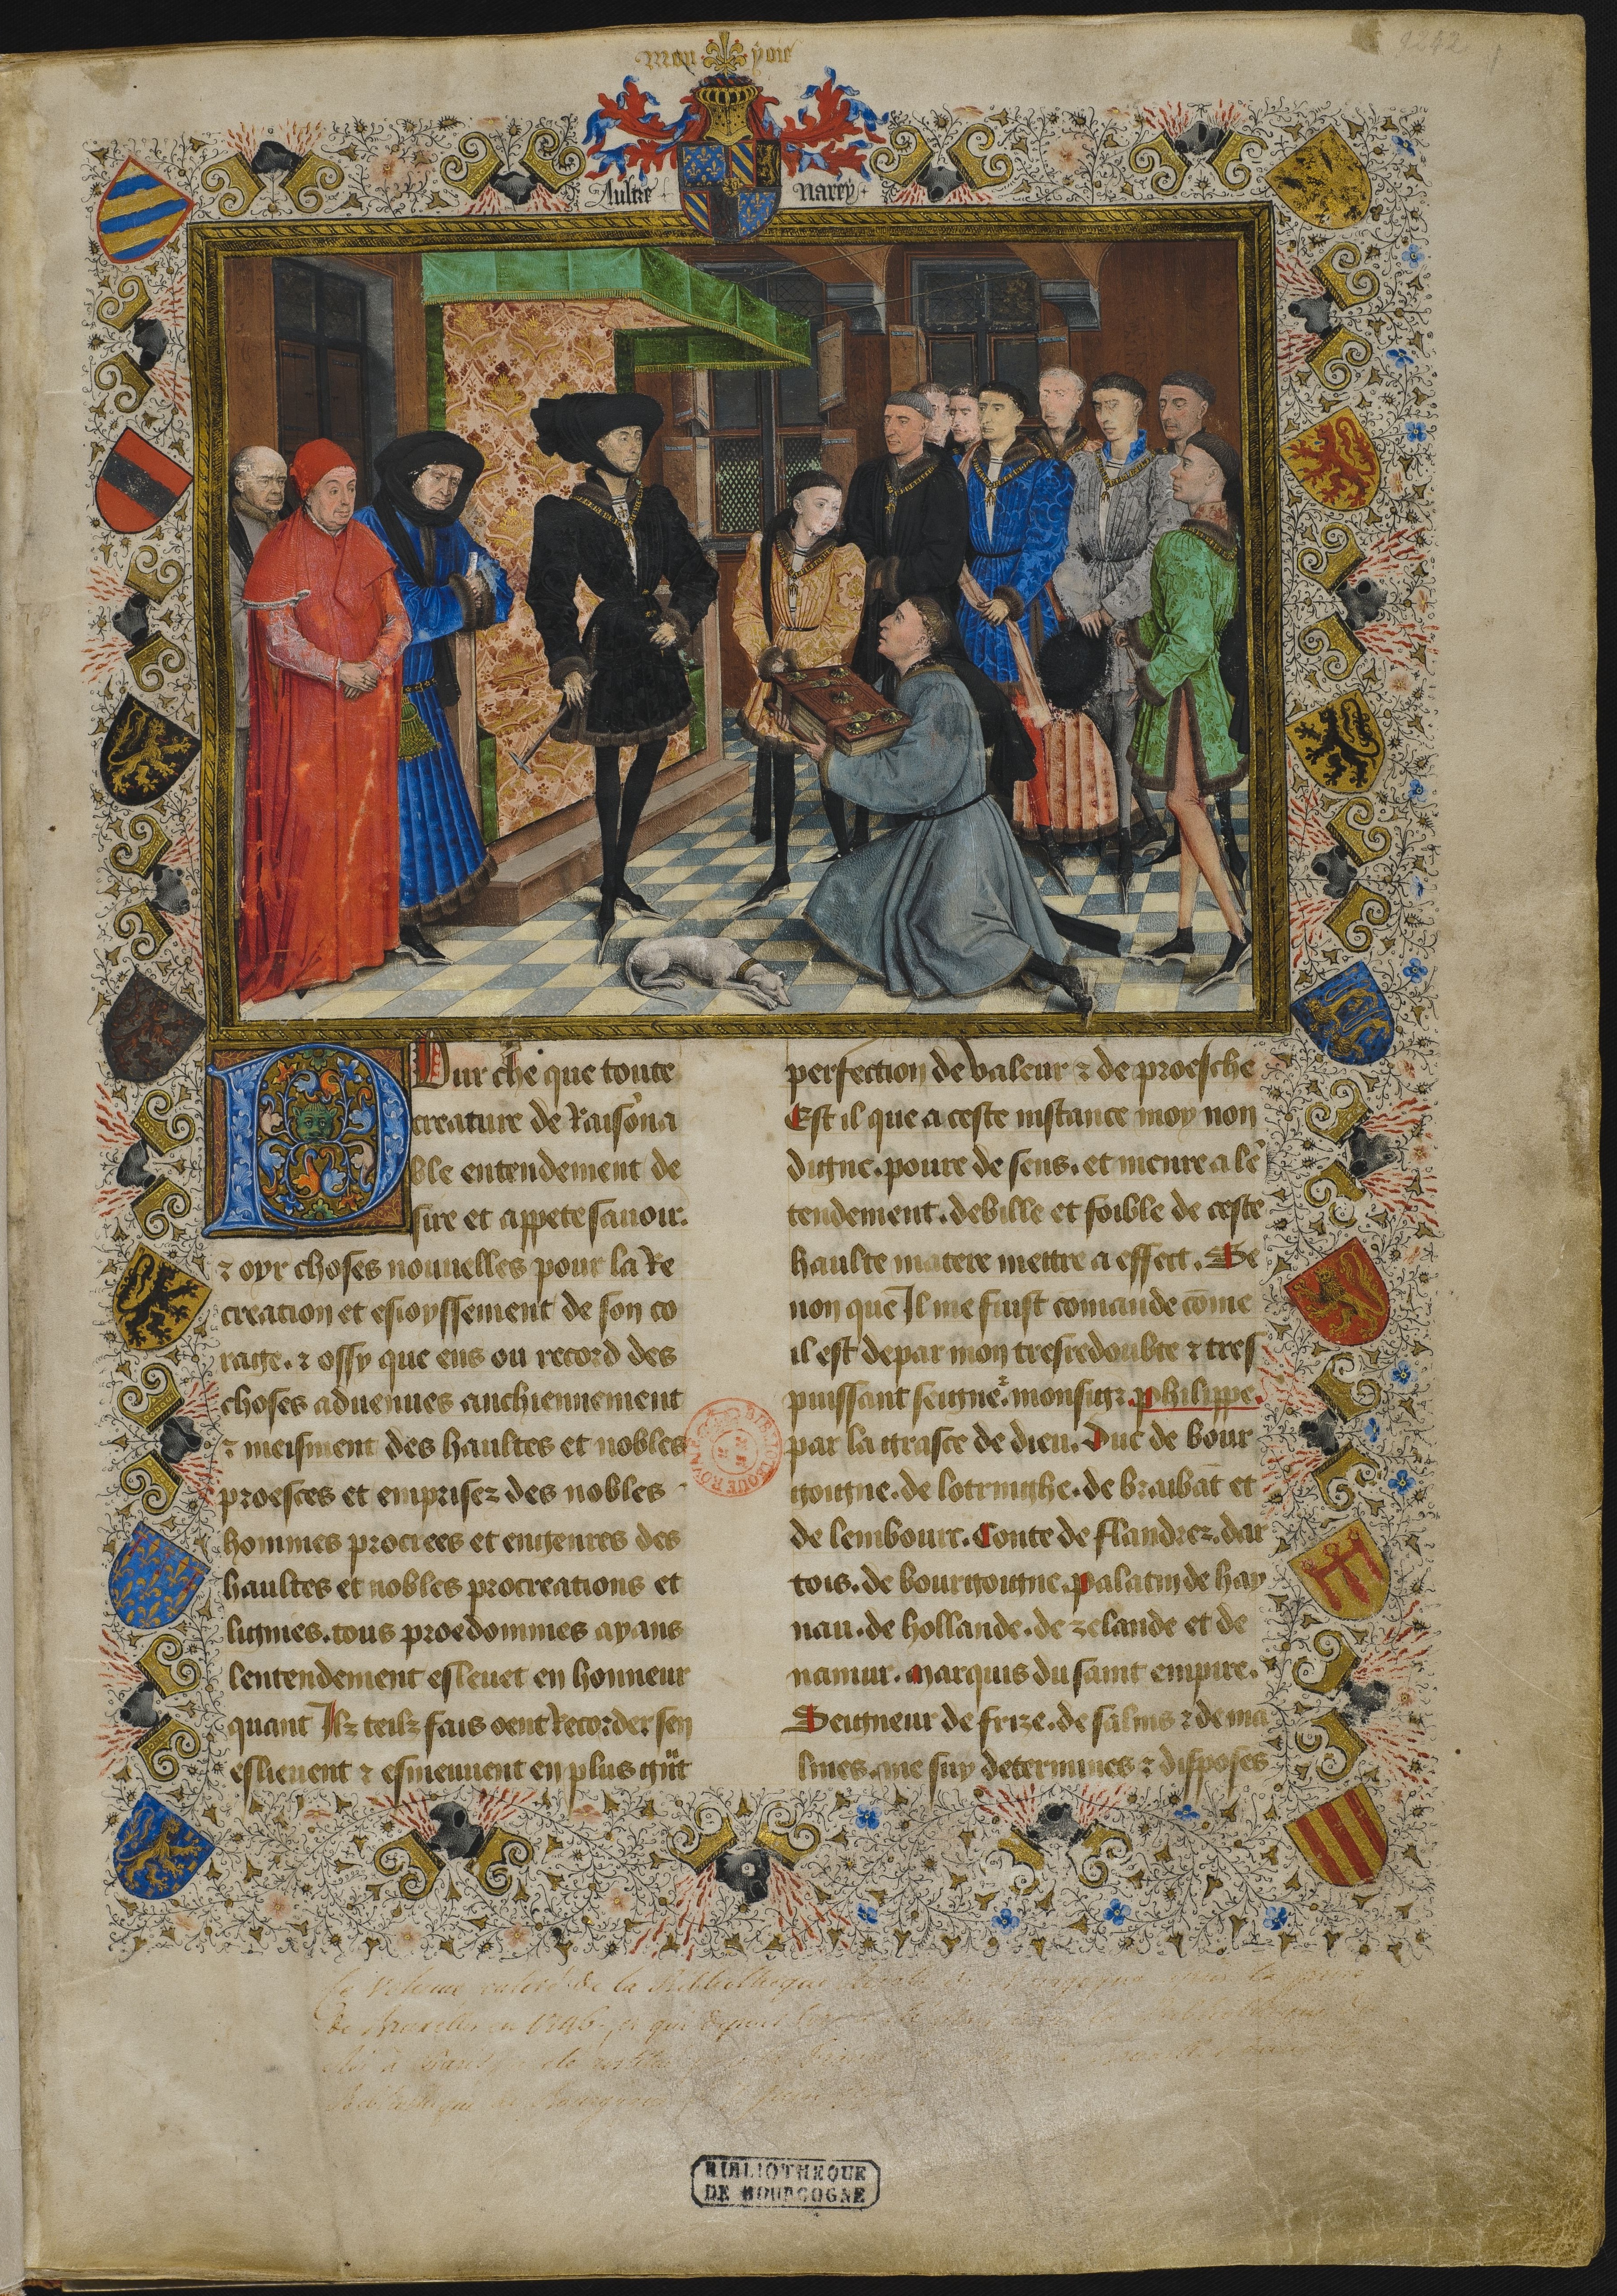 9242
Mon yoie
Aultre narey
Pur che que toute
creature de Raisona
ble entendement de
sire et appete savoir.
⁊ oyr choses nouvelles pour la Re
creation et esioyssement de son co
rage. ⁊ ossy que ens ou record des
choses advenues anchiennement
⁊ meisment des haultes et nobles
proesces et emprisez des nobles
hommes procrees et engenres des
haultes et nobles procreations et
lignies. tous proedommes ayans
lentendement eslevet en honneur
quant Ilz teilz fais oent Recorder sen
eslievent ⁊ esmeuvent en plus gũt
perfection de valeur ⁊ de proesche
Est il que a ceste instance moy non
digne. poure de sens. et menre a lẽ
tendement. debille et foible de ceste
haulte matere mettre a effect. Se
non que Il me fuist comande cõme
il est de par mon tresredoubte ⁊ tres
puissant seigne². monsigr philippe.
par la grasce de dieu. Duc de bour
gongne. de lotringhe. de braibãt et
de lembourc. Conte de flandrez. dar
tois. de bourgongne. palatin de hay
nau. de hollande. de zelande et de
namur. Marquis du saint empire.
Seigneur de frize. de salins ⁊ de ma
lines. me suy determines ⁊ disposes
Ce Volume retiré de la Bibliothèque
de Bruxelles en 1746
BIBLIOTHEQUE
DE BOURGOGNE